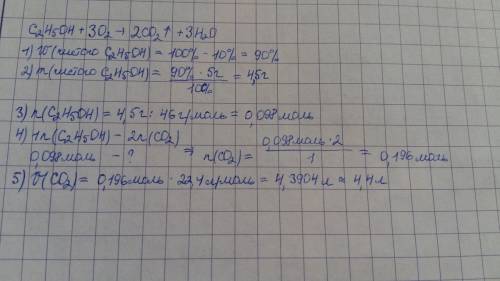 C₂H₅OH + 3O₂ → 2CO₂↑ + 3H₂O
1) W(чистого C₂H₅OH) = 100% - 10% = 90%
2) m(чистого C₂H₅OH) = 90% · 5г / 100% = 4,5г
3) n(C₂H₅OH) = 4,5г : 46 г/моль = 0,098 моль
4) 1n(C₂H₅OH) - 2n(CO₂)
0,098моль - ? ⇒ n(CO₂) = 0,098моль · 2 / 1 = 0,196 моль
5) V(CO₂) = 0,196 моль · 22,4 л/моль = 4,3904 л ≈ 4,4л